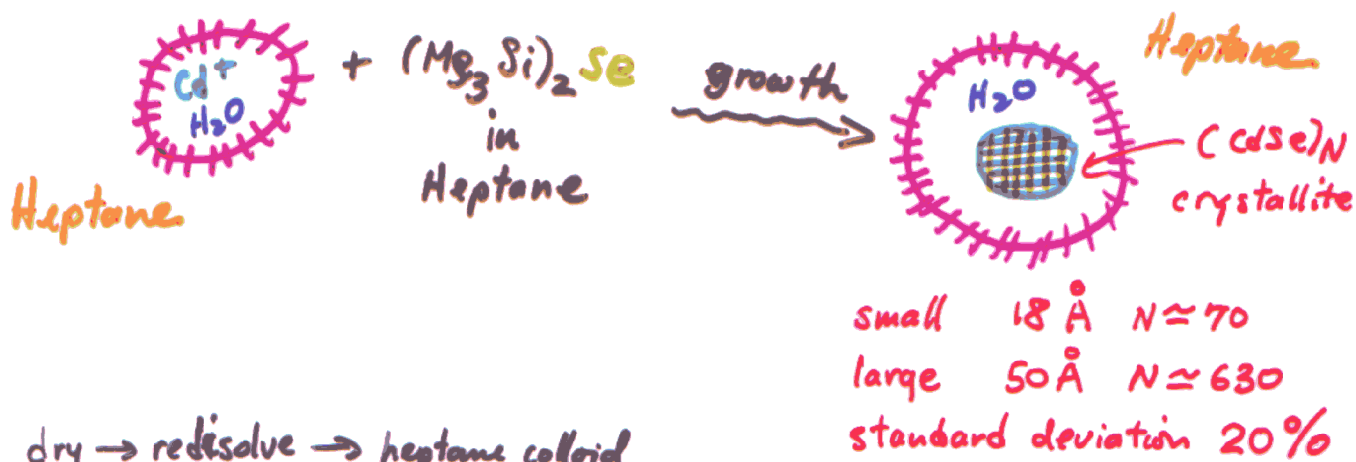 Cd+
H2O
Heptane
+ (Me3Si)2 Se
in
Heptane
growth
Heptane
H2O
(CdSe)N
crystallite
small 18 Å N≃70
large 50Å N≃630
standard deviation 20%
dry → redisolve → heptane colloid